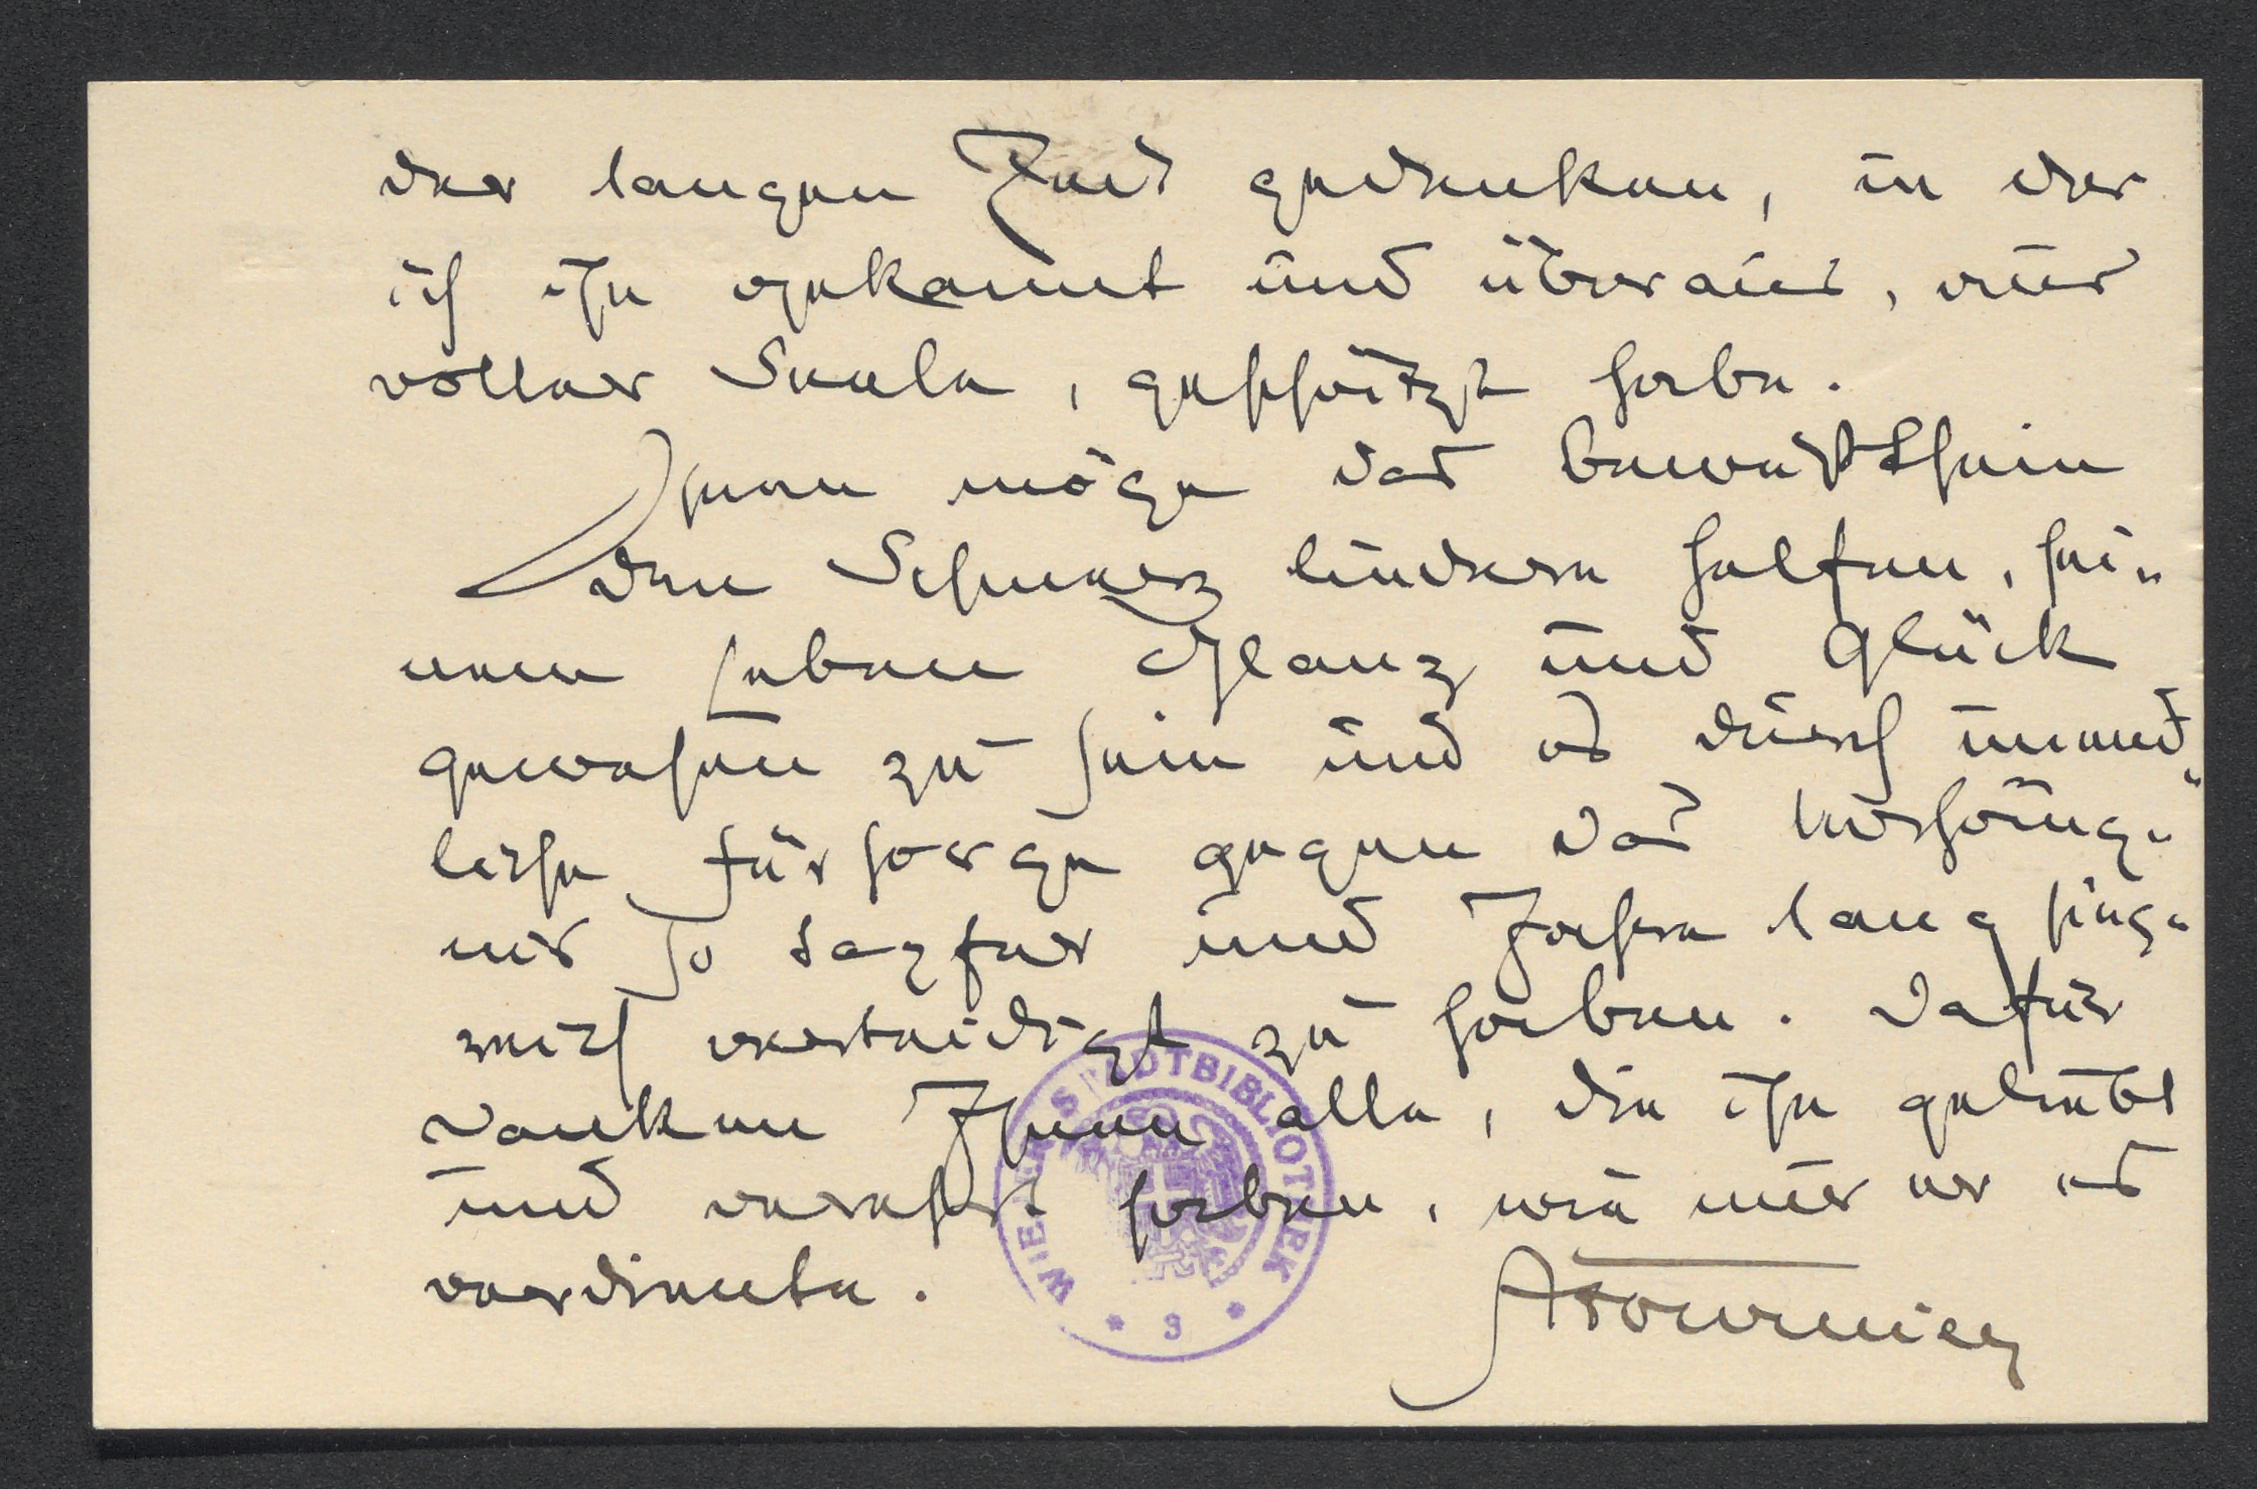 der langen Zeit gedenken, in der
ich ihn gekannt und überaus, aus
voller Seele, geschätzt habe.
Ihnen möge das Bewußtsein
den Schmerz lindern helfen, sei-
nem Leben Glanz und Glück
gewesen zu sein und es durch unend-
liche Fürsorge gegen das Verhäng-
nis so tapfer und Jahre lang sieg-
reich verteidigt zu haben. Dafür
danken Ihnen alle, die ihn geliebt
und verehrt haben, wie nur er es
verdiente.
AFournier
WIENER STADTBIBLIOTHEK
* 3 *